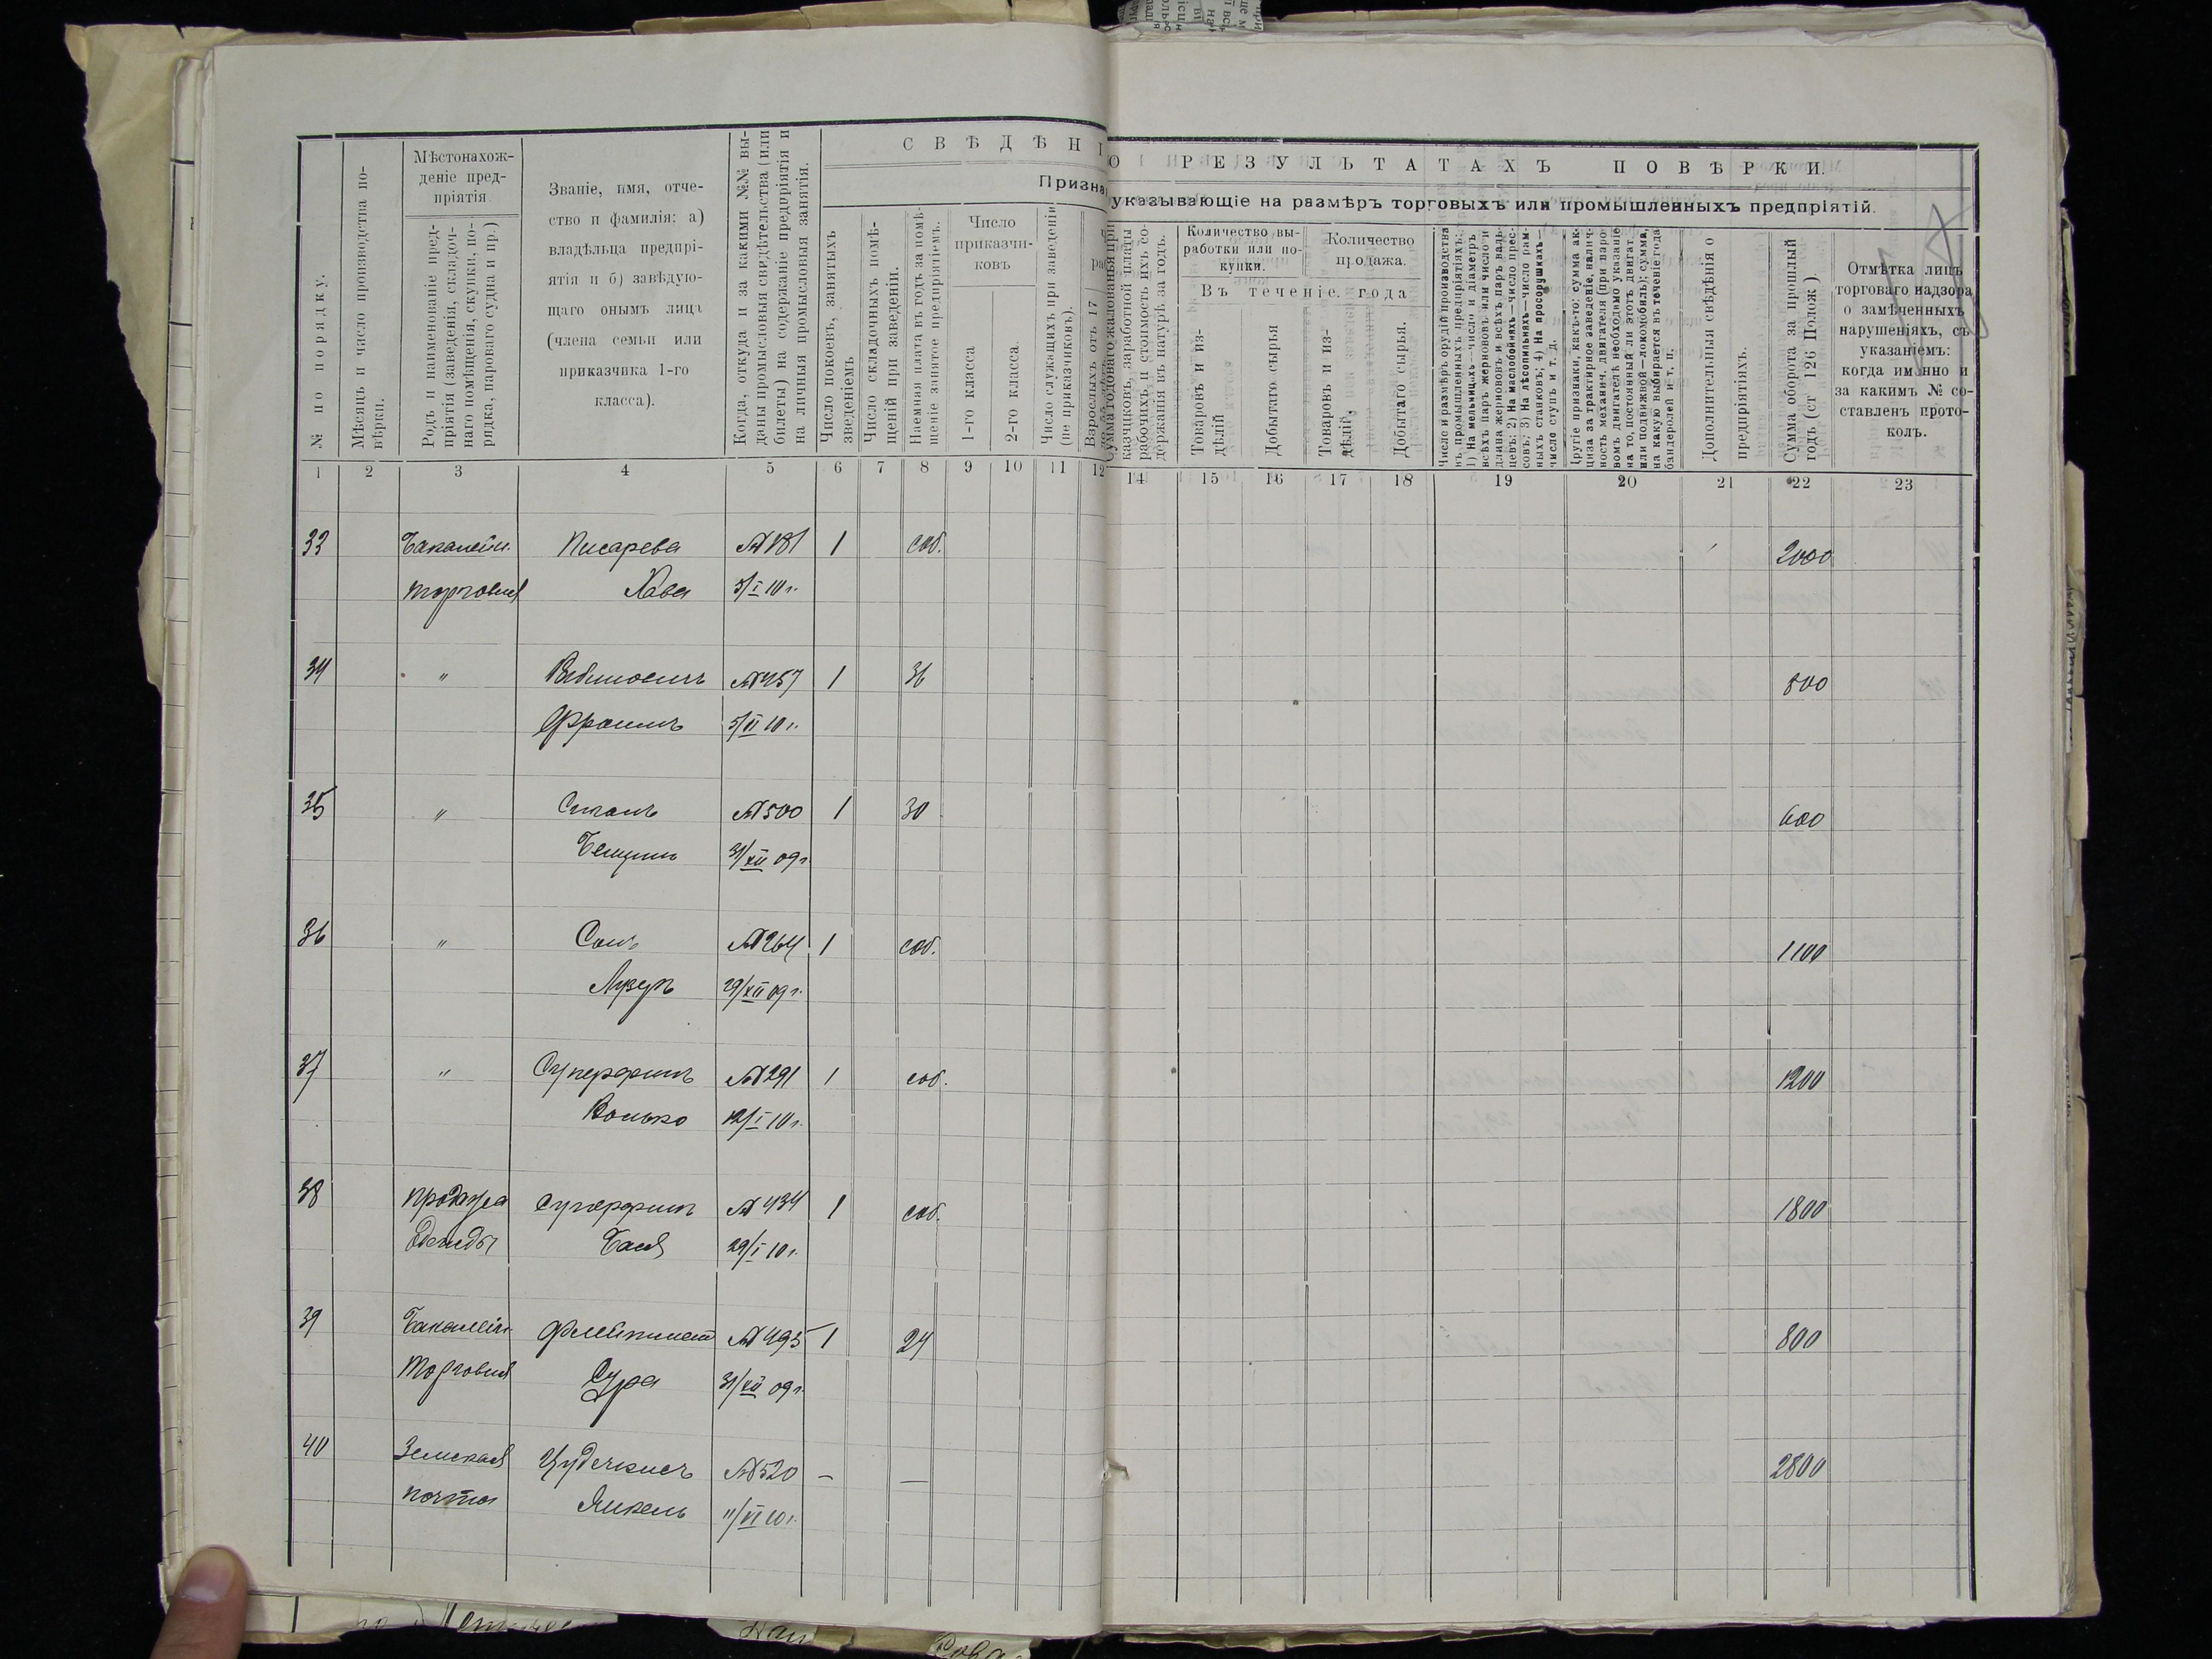 СВѢДѢНІ
О РЕЗУЛЬТАТАХЪ ПОВѢРКИ.
Призна
указывающіе на размѣръ торговыхъ или промышленныхъ предпріятій.
№ по порядку.
Мѣсяцъ и число производства по-
вѣрки.
Мѣстонахож-
деніе пред-
пріятія
Родъ и наименованіе пред-
пріятія (заведенія, складоч-
наго помѣщенія, скупки, по-
рядка, парового судна и пр.)
Званіе, имя, отче-
ство и фамилія: а)
владѣльца предпрі-
ятія и б) завѣдую-
щаго онымъ лица
(члена семьи или
приказчика 1-го
класса).
Когда, откуда и за какими №№ вы-
даны промысловыя свидѣтельства (или
билеты) на содержаніе предпріятія и
на личныя промысловыя занятія.
Число покоевъ, занятыхъ
зведеніемъ
Число складочныхъ помѣ-
щеній при заведеніи.
Наемная плата въ годъ за помѣ-
щеніе занятое предпріятіемъ.
Число
приказчи-
ковъ
1-го класса
2-го класса.
Число служащихъ при заведеніи
(не приказчиковъ).
Взрослыхъ отъ 17
Сумма годового жалованья при
казчиковъ, заработной платы
рабочихъ и стоимость ихъ со-
держанія въ натурѣ за годъ.
Количество вы-
работки или по-
купки.
Количество
продажа.
Въ теченіе года
Товаровъ и из-
дѣлій
Добытаго сырья
Товаровъ и из-
дѣлій,
Добытаго сырья.
Число и размѣръ орудій производства
въ промышленныхъ предпріятіяхъ:
1) На мельницахъ—число и діаметръ
всѣхъ паръ жерновъ или число и
длина жерновъ и всѣхъ паръ валь-
цевъ; 2) На маслобойняхъ—число прес-
совъ; 3) На лѣсопильняхъ—число рам-
ныхъ станковъ; 4) На просорушкахъ—
число ступъ и т. д.
Другіе признаки, какъ-то: сумма ак-
циза за трактирное заведеніе, налич-
ность механич. двигателя (при паро-
вомъ двигателѣ необходимо указаніе
на то, постоянный ли этотъ двигат.
или подвижной—локомобиль); сумма,
на какую выбирается въ теченіе года
бандеролей и т. п.
Дополнительныя свѣдѣнія о
предпріятіяхъ.
Сумма оборота за прошлый
годъ (ст 126 Полож.)
Отмѣтка лицъ
торговаго надзора
о замѣченныхъ
нарушеніяхъ, съ
указаніемъ:
когда именно и
за какимъ № со-
ставленъ прото-
колъ.
1 2 3 4 5 6 7 8 9 10 11 12 14 15 16 17 18 19 20 21 22 23
33 Бакалейн. Писарева №181 1 соб. 2000
торговля Хава 5/I 10 г.
34 " №457 1 36 800
Фроимъ 5/II 10 г.
35 " №500 1 30 600
31/XII 09 г.
36 " №264 1 соб. 1100
Лузеръ 29/XII 09 г.
37 " Суперфинъ №291 1 соб. 1200
Волько 12/I 10 г.
38 продажа Суперфинъ №434 1 соб. 1800
одежды Бася 29/I 10 г.
39 Бакалейн. №495 1 24 800
торговля Сура 31/XII 09 г.
40 Земская Цудечкисъ №520 — — 2800
почта Янкель 11/VI 10 г.